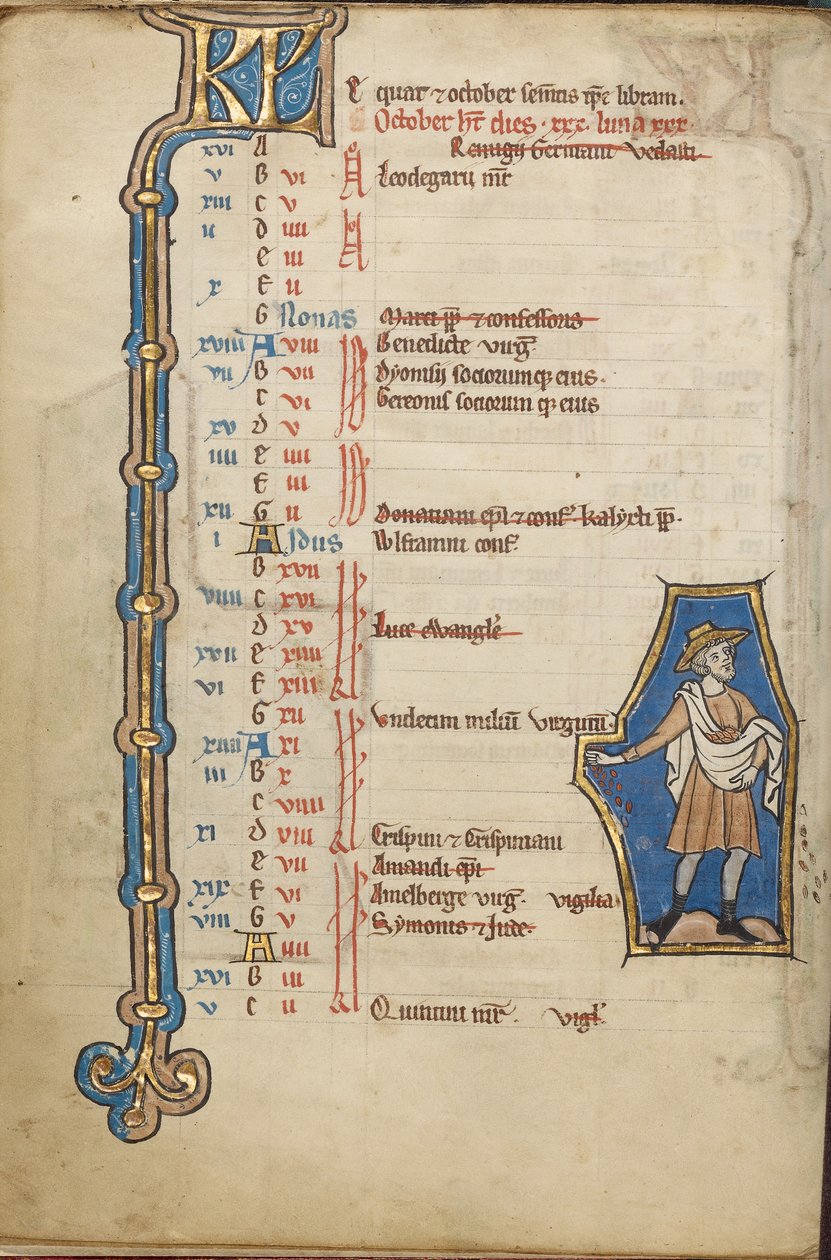 KL
equat & october semtis tpe libram.
October ht dies xxx luna xxx
xvi A Remigii Germani Vedasti
v B vi Leodegarii mr
xiii c v
ii d iiii
e iii
x F ii
G Nonas Marci pp & confessoris
xviii A viii Benedicte virg
vii B vii Dyonisii sociorumq eius.
c vi Gereonis sociorum q eius
xv d v
iiii e iiii
F iii
xii G ii Donatiani epi & conf. kalyxti pp.
i A Idus Wlframni conf.
B xvii
viiii c xvi
d xv Luce ewangle
xvii e xiiii
vi F xiii
G xii Undecim miliu virginu.
xiiii A xi
iii B x
c viiii
xi d viii Crispini & Crispiniani
e vii Amandi epi
xix F vi Amelberge virg. vigilia
viii G v Symonis & Jude.
A iiii
xvi B iii
v c ii Quintini mr. vigl.